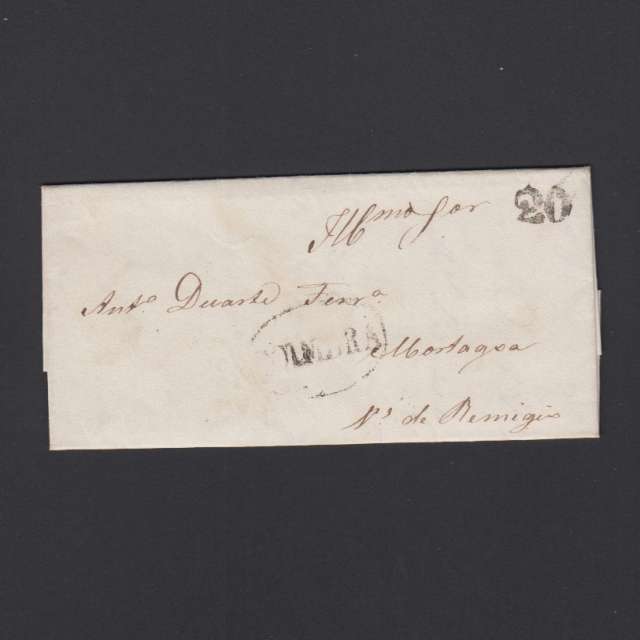 Illmo Snr
20
Anto Duarte Ferra
Mortagoa
Ps de Remigio